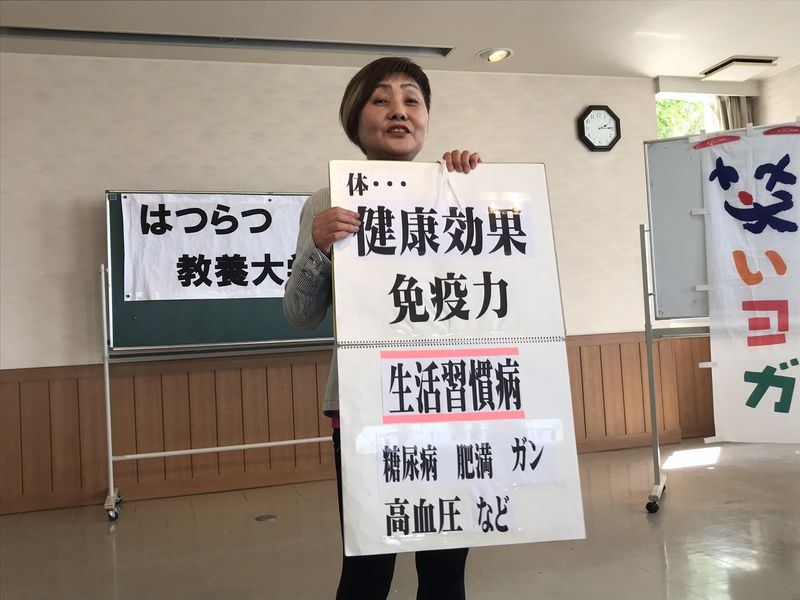 はつらつ
教養大学
体・・・
健康効果
免疫力
生活習慣病
糖尿病 肥満 ガン
高血圧 など
笑いヨガ